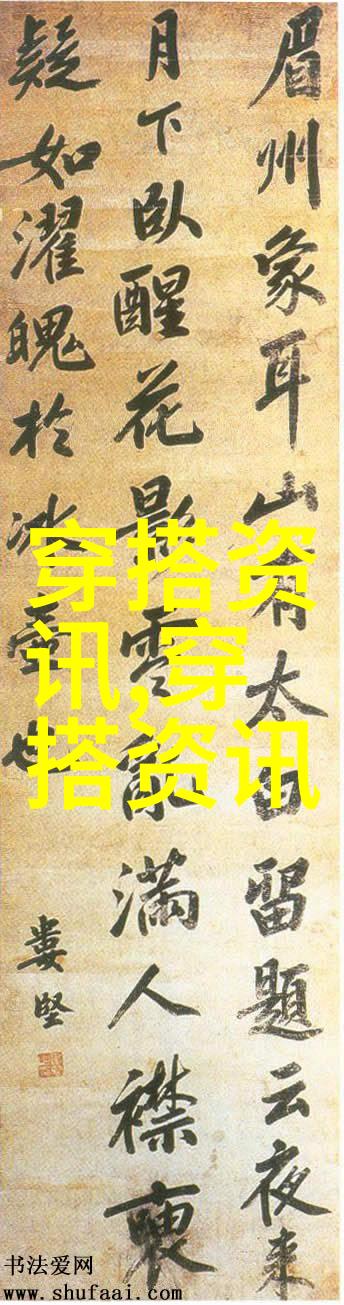 眉州象耳山有太白留題云夜來
月下臥醒花影零亂滿人襟褎
疑如濯魄於冰壺也
婁堅
穿搭资
讯,穿
搭资讯
书法爱网
www.shufaai.com